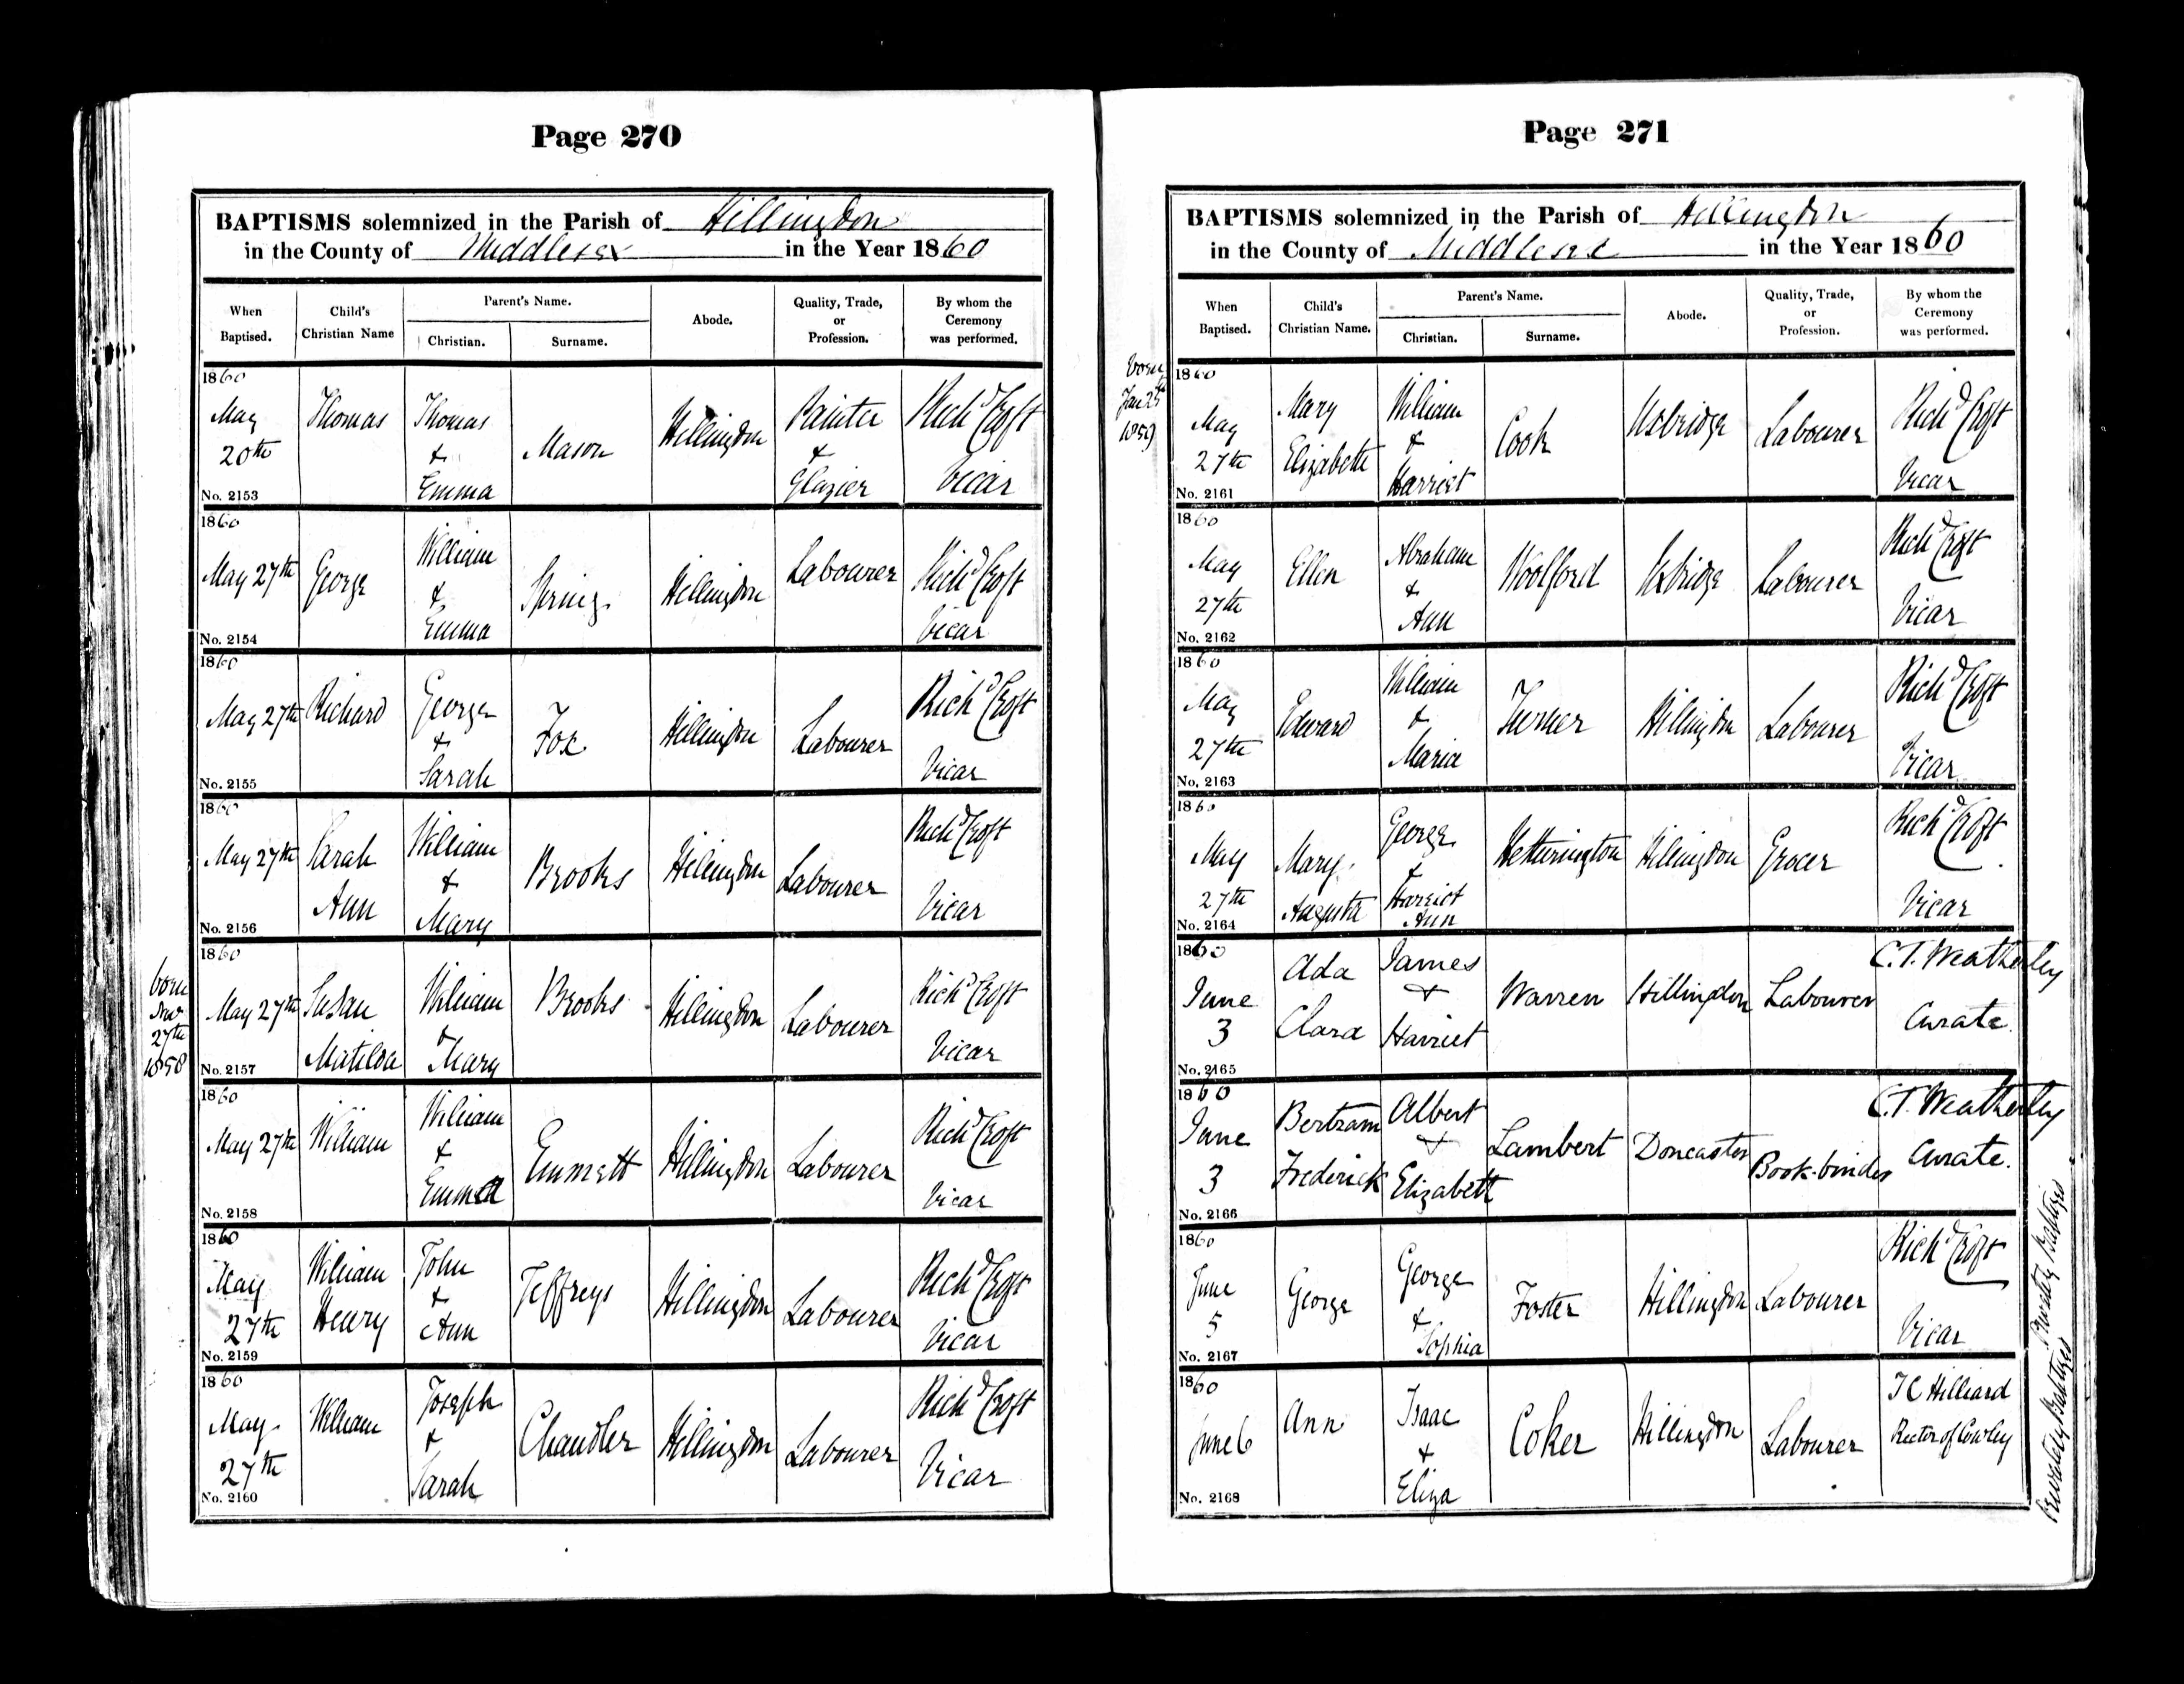 Page 270
BAPTISMS solemnized in the Parish of Hillingdon
in the County of Middlesex in the Year 1860
When Baptised. Child's Christian Name Parent's Name. Christian. Surname. Abode. Quality, Trade, or Profession. By whom the Ceremony was performed.
1860 May 20th No. 2153 Thomas Thomas & Emma Mason Hillingdon Painter & Glazier Richd Croft Vicar
1860 May 27th No. 2154 George William & Emma Spring Hillingdon Labourer Richd Croft Vicar
1860 May 27th No. 2155 Richard George & Sarah Fox Hillingdon Labourer Richd Croft Vicar
1860 May 27th No. 2156 Sarah Ann William & Mary Brooks Hillingdon Labourer Richd Croft Vicar
born Novr 27th 1858
1860 May 27th No. 2157 Susan Matilda William & Mary Brooks Hillingdon Labourer Richd Croft Vicar
1860 May 27th No. 2158 William William & Emma Emmett Hillingdon Labourer Richd Croft Vicar
1860 May 27th No. 2159 William Henry John & Ann Jeffreys Hillingdon Labourer Richd Croft Vicar
1860 May 27th No. 2160 William Joseph & Sarah Chandler Hillingdon Labourer Richd Croft Vicar
Page 271
BAPTISMS solemnized in the Parish of Hillingdon
in the County of Middlesex in the Year 1860
When Baptised. Child's Christian Name. Parent's Name. Christian. Surname. Abode. Quality, Trade, or Profession. By whom the Ceremony was performed.
born Jan 25th 1859
1860 May 27th No. 2161 Mary Elizabeth William & Harriet Cook Uxbridge Labourer Richd Croft Vicar
1860 May 27th No. 2162 Ellen Abraham & Ann Woolford Uxbridge Labourer Richd Croft Vicar
1860 May 27th No. 2163 Edward William & Maria Turner Hillingdon Labourer Richd Croft Vicar
1860 May 27th No. 2164 Mary Augusta George & Harriet Ann Hetherington Hillingdon Grocer Richd Croft Vicar
1860 June 3 No. 2165 Ada Clara James & Harriet Warren Hillingdon Labourer C.T. Weatherley Curate.
1860 June 3 No. 2166 Bertram Frederick Albert & Elizabeth Lambert Doncaster Book-binder C.T. Weatherley Curate.
1860 June 5 No. 2167 George George & Sophia Foster Hillingdon Labourer Richd Croft Vicar
Privately Baptized
1860 June 6 No. 2168 Ann Isaac & Eliza Coker Hillingdon Labourer J C Hilliard Rector of Cowley
Privately Baptized